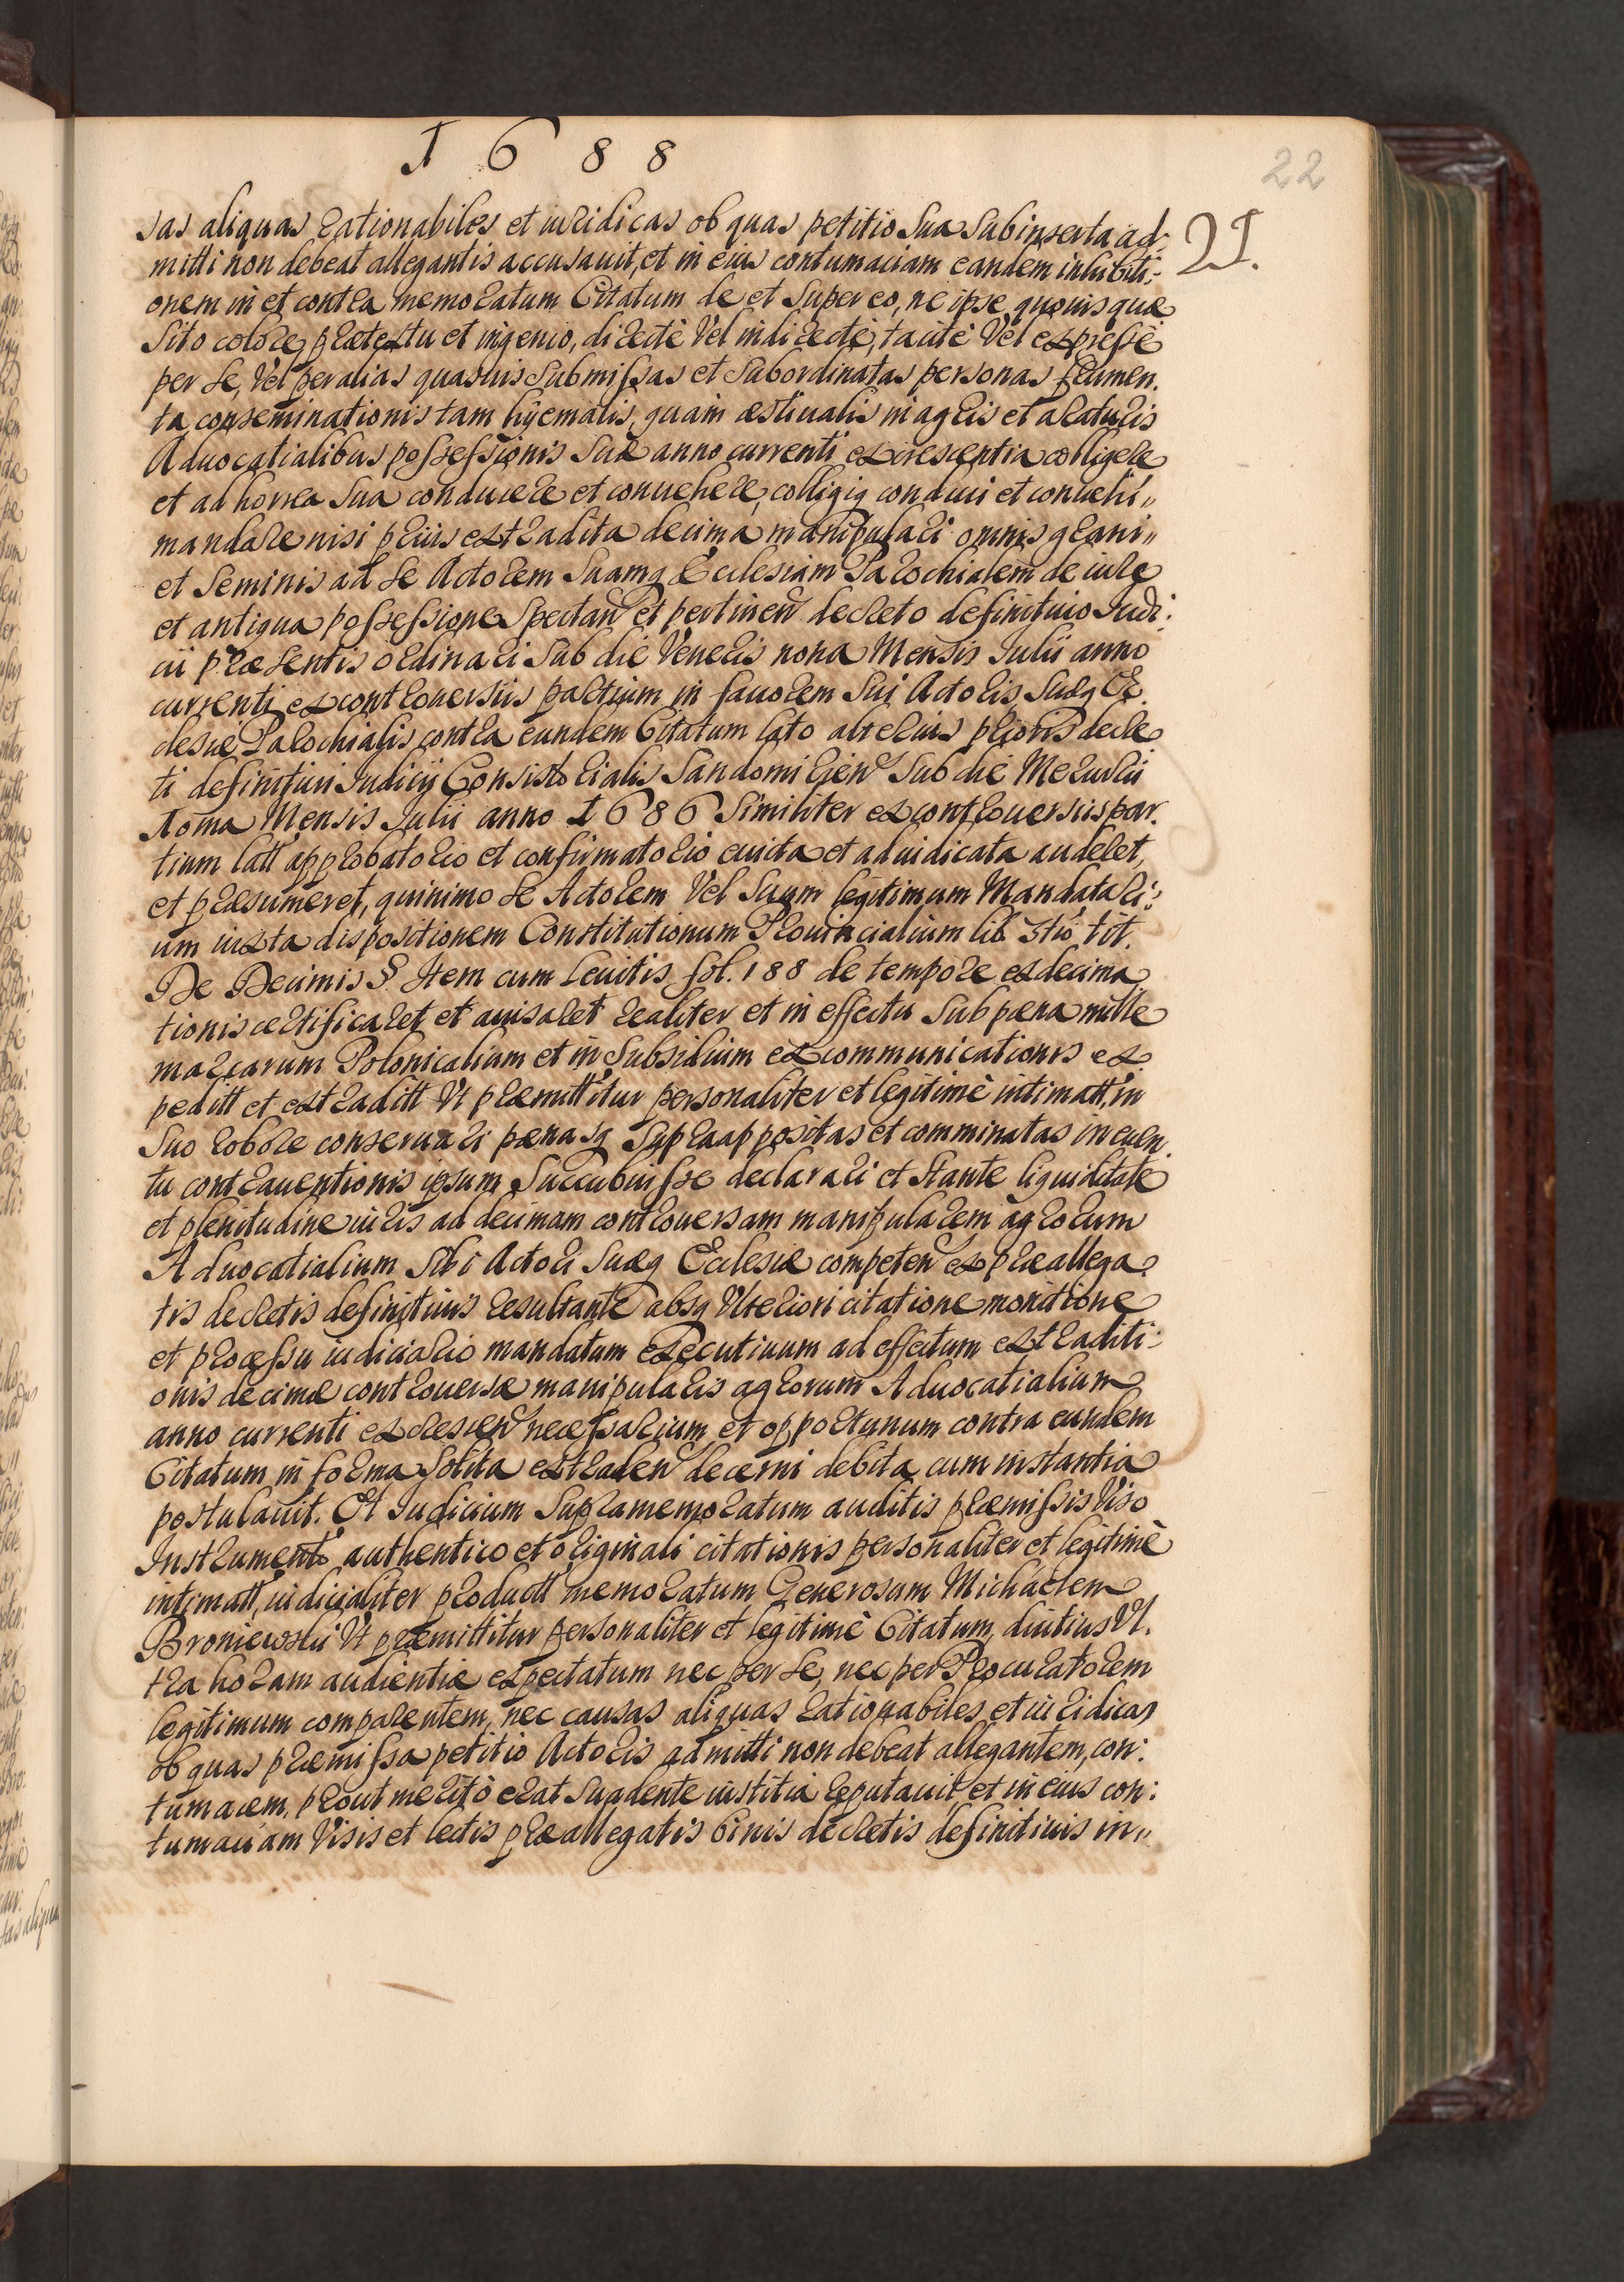 1688
22
21.
sas aliquas rationabiles et iuridicas ob quas petitio sua subinserta ad:
mitti non debeat allegantis accusauit, et in eius contumaciam eandem inhibiti:
onem in et contra memoratum Citatum de et super eo, ne ipse quouis quæ
sito colore, prætextu et ingenio, directè Vel indirectè, tacitè Vel expressè
per se, Vel per alias quasuis submissas et subordinatas personas frumen.
ta conseminationis tam hyemalis, quam æstiualis in agris et araturis
Aduocatialibus possessionis suæ anno currenti excrescentia colligere
et ad horrea sua conducere et conuehere, colligiq conduci et conuehi „
mandare nisi prius extradita decima manipulari omnis grani „
et seminis ad se Actorem suamq Ecclesiam Parochialem de iure
et antiqua possessione spectan et pertinen decreto definitiuo Iudi:
cii præsentis ordinari sub die Veneris nona Mensis Iulii anno
currenti ex controuersiis partium in fauorem sui Actoris, suæq Ec
clesiæ Parochialis contra eundem Citatum lato alterius prioris decre
ti definitiui Iudicij Consistorialis Sandomirien sub die Mercurii
 Mensis Iulii anno 1686 similiter ex controuersiis par.
tium latt approbatorio et confirmatorio euicta et adiudicata auderet,
et præsumeret, quinimo se Actorem Vel suum legitimum Mandatari:
um iuxta dispositionem Constitutionum Prouincialium lib. 3tio tit.
De Decimis § Item cum leuitis fol. 188 de tempore exdecima
tionis certificaret et auisaret realiter et in effectu sub pæna mille
marcarum Polonicalium et in subsidium excommunicationis ex
peditt et extraditt Vt præmittitur personaliter et legitimè intimatt, in
suo robore conseruari pænasq supra appositas et comminatas in euen
tu contrauentionis ipsum succubuisse declarari et stante liquiditate
et plenitudine iuris ad decimam controuersam manipularem agrorum
Aduocatialium sibi Actori suæq Ecclesiæ competen ex præallega
tis decretis definitiuis resultante absq Vlteriori citatione monitione
et processu iudiciario mandatum executiuum ad effectum extraditi:
onis decimæ controuersæ manipularis agrorum Aduocatialium
anno currenti excrescen necessarium et opportunum contra eundem
Citatum in forma solita extraden decerni debita cum instantia
postulauit. Et Iudicium supramemoratum auditis præmissis Viso
Instrumento authentico et originali citationis personaliter et legitimè
intimatt, iudicialiter productt memoratum Generosum Michaelem
Broniewski Vt præmittitur personaliter et legitimè Citatum, diutius Vl.
tra horam audientiæ expectatum nec per se, nec per Procuratorem
legitimum comparentem, nec causas aliquas rationabiles et iuridicas
ob quas præmissa petitio Actoris admitti non debeat allegantem, con:
tumacem, prout meritò erat suadente iustitia reputauit et in eius con:
tumaciam Visis et lectis præallegatis binis decretis definitiuis in „